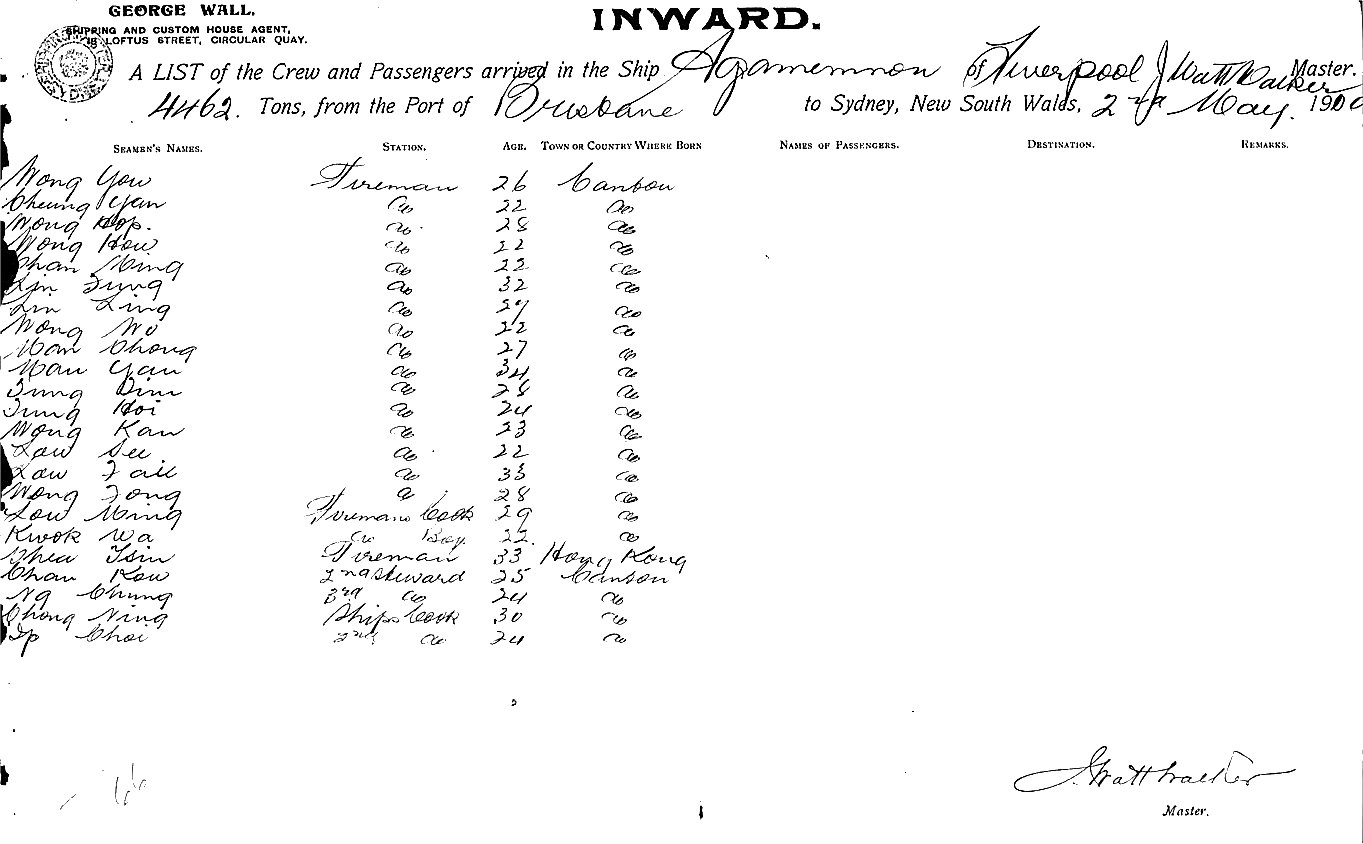 GEORGE WALL,
SHIPPING AND CUSTOM HOUSE AGENT,
18 LOFTUS STREET, CIRCULAR QUAY.
INWARD.
A LIST of the Crew and Passengers arrived in the Ship Agamemnon of Liverpool J Watt Walker Master.
4462 Tons, from the Port of Brisbane to Sydney, New South Wales, 2nd May. 190
SEAMEN'S NAMES. STATION. AGE. TOWN OR COUNTRY WHERE BORN NAMES OF PASSENGERS. DESTINATION. REMARKS.
Wong You Fireman 26 Canton
Cheung Yan do 22 do
Wong Hop. do 28 do
Wong How do 22 do
Chan Ming do 22 do
Lin Fung do 32 do
Lin Ling do 27 do
Wong Wo do 22 do
Man Chong do 27 do
Man Yau do 34 do
Fung Dim do 28 do
Fung Hoi do 24 do
Wong Kan do 23 do
Law See do 22 do
Law Fail do 33 do
Wong Fong do 28 do
Low Ming Firemans Cook 29 do
Kwok Wa do Boy 22 do
Shea Tsin Fireman 33 Hong Kong
Chan Kow 2nd Steward 25 Canton
Ng Chung 3rd do 24 do
Chong Ning Ships Cook 30 do
Ip Choi 2nd do 24 do
J. Watt Walker
Master.